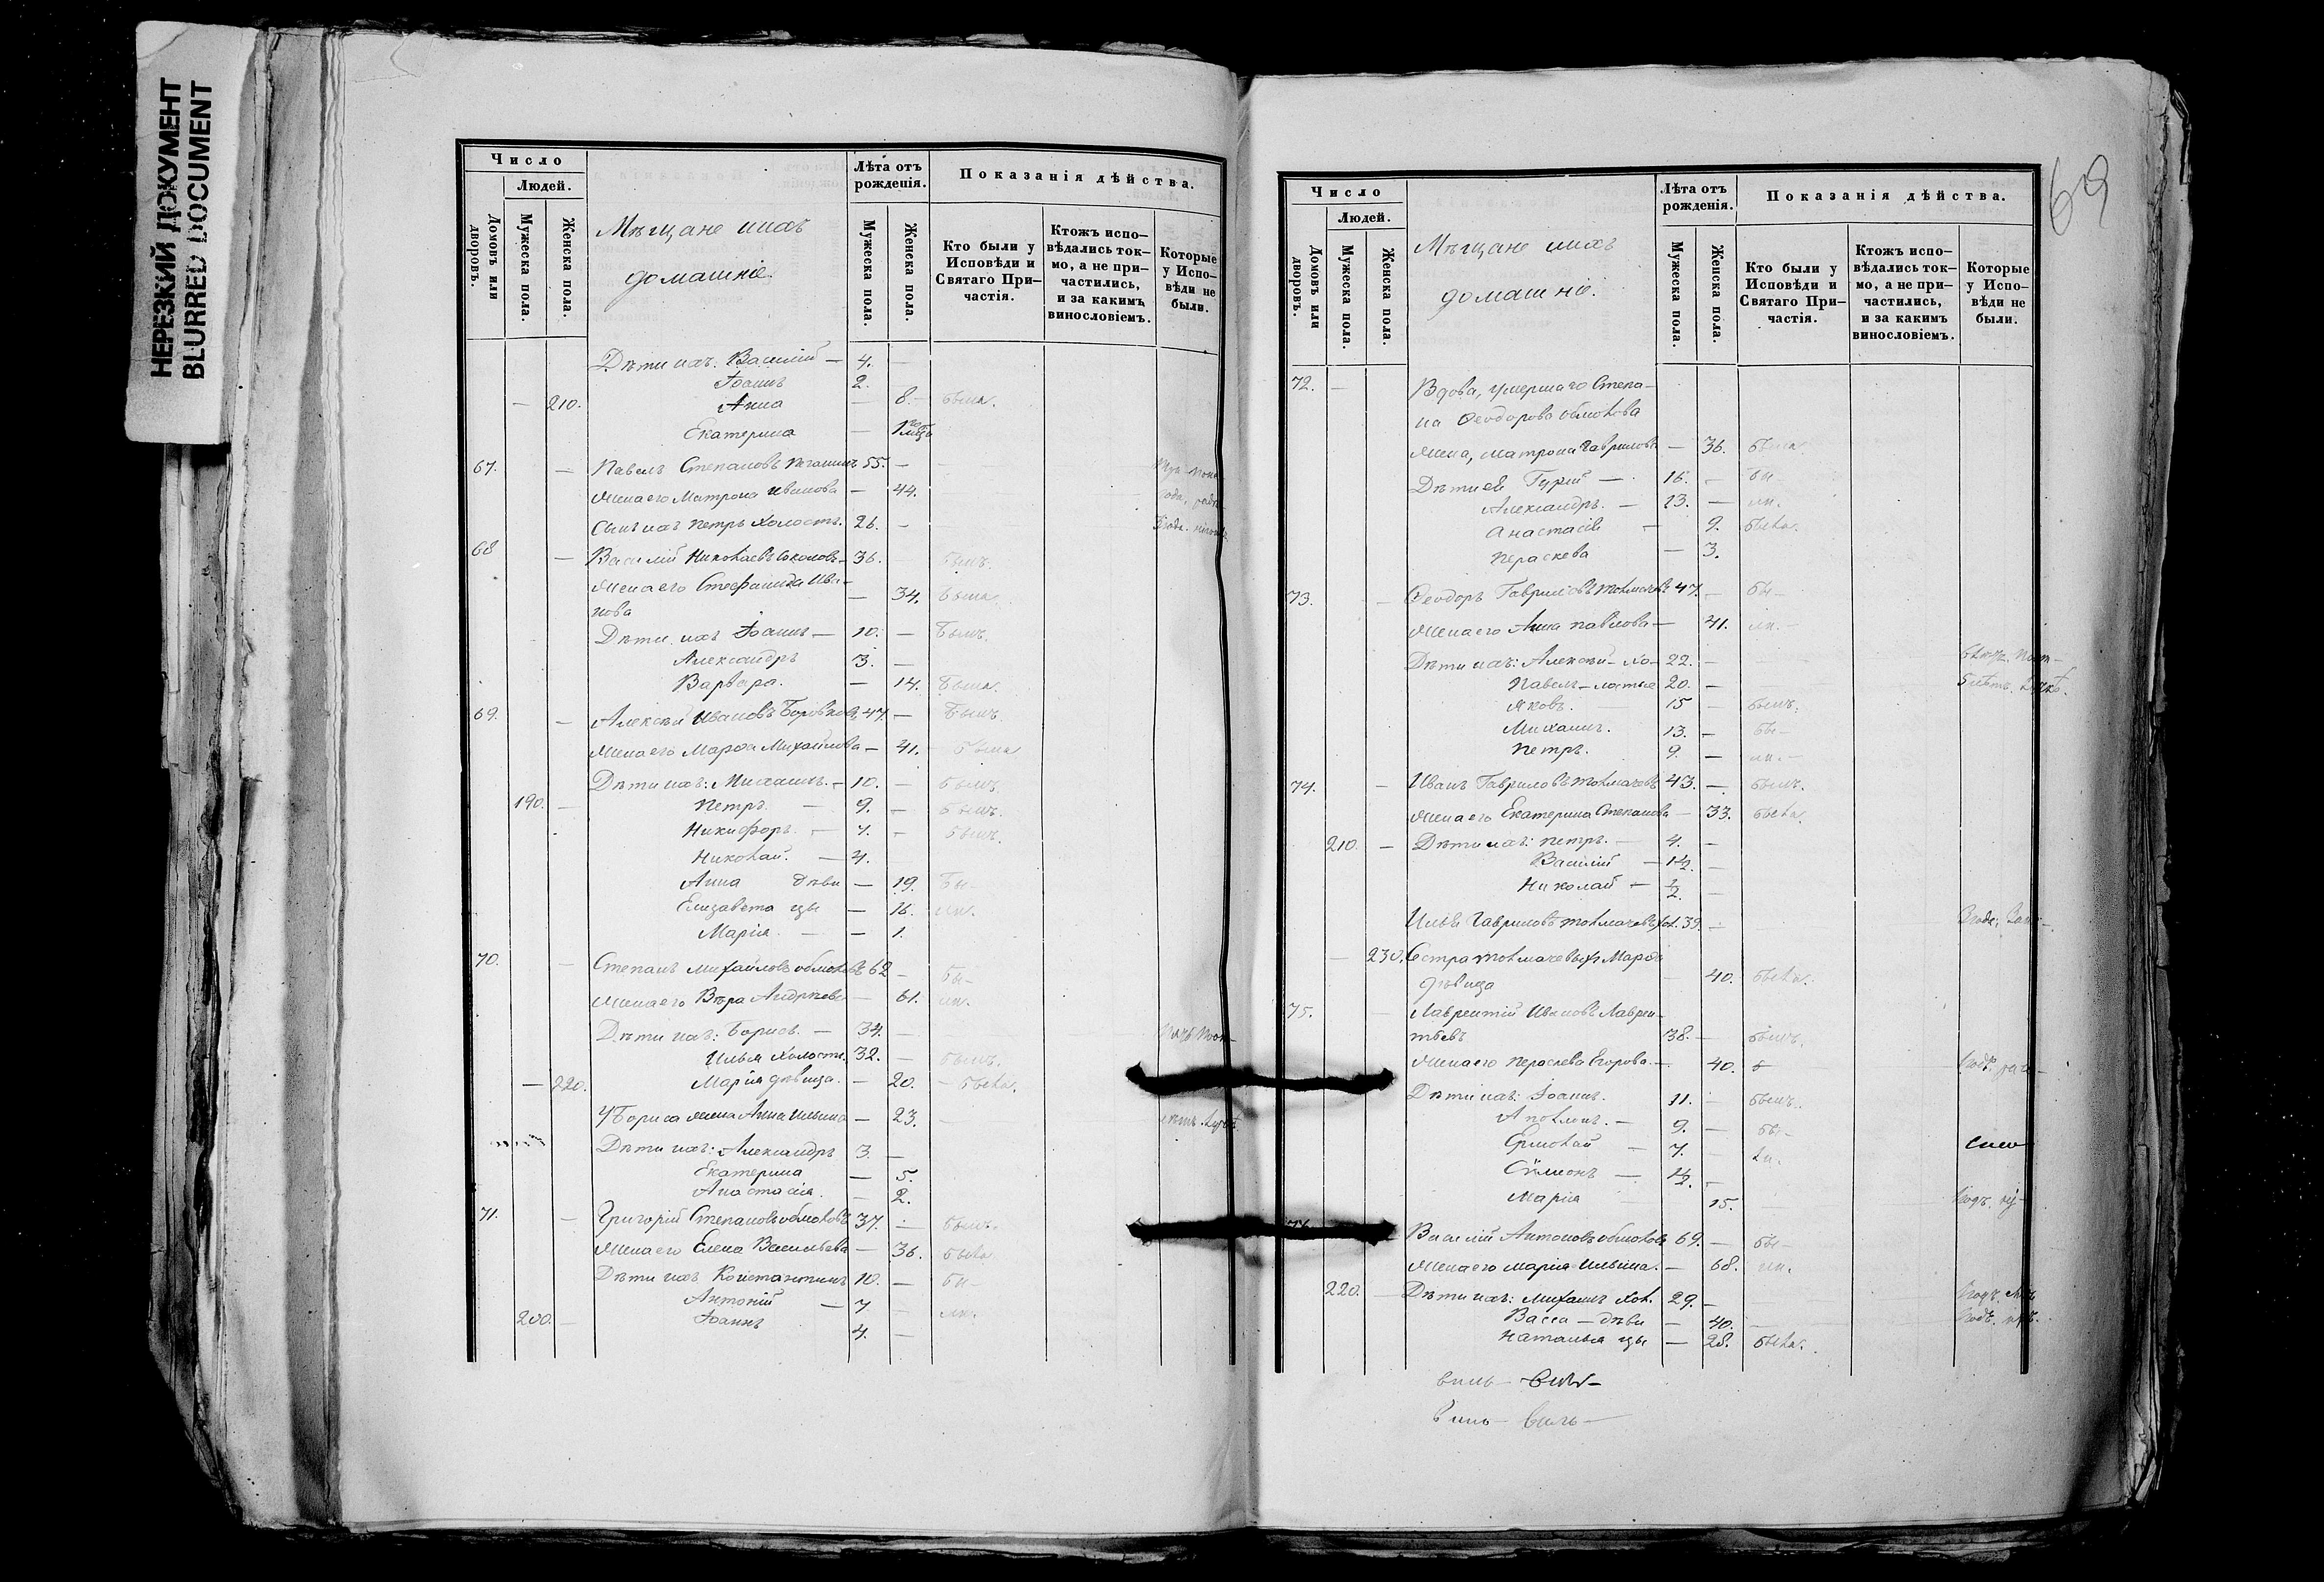 НЕРЕЗКИЙ ДОКУМЕНТ
BLURRED DOCUMENT
Число
Людей.
Домовъ или дворовъ.
Мужеска пола.
Женска пола.
Мѣщане ихъ
домашніе.
Лѣта отъ рожденія.
Мужеска пола.
Женска пола.
Показанія дѣйства.
Кто были у Исповѣди и Святаго При-частія.
Ктожъ испо-вѣдались ток-мо, а не при-частились, и за какимъ винословіемъ.
Которые у Испо-вѣди не были.
Дѣти ихъ: Василій — 4. —
Іоаннъ 2.
— 210. Анна — 8. — была.
Екатерина — 1
67. — Павелъ Степановъ 55. —
Жена его Матрона Иванова — 44.
Сынъ ихъ Петръ холостъ. 26. —
68 — Василій Николаевъ Соколовъ — 36. былъ.
Жена его Стефанида Ива-
нова — 34. была.
Дѣти ихъ Іоаннъ — 10. — былъ.
Александръ 3. —
Варвара. — 14. была.
69. — Алексѣй Ивановъ Боровковъ 47. — былъ.
Жена его Марѳа Михайлова — 41. — была
Дѣти ихъ: Михаилъ. — 10. — былъ
190. — Петръ. — 9. — былъ.
Никифоръ. — 7. — былъ.
Николай. — 4.
Анна дѣви — 19. бы-
Елизавета цы — 16. ли.
Марія. — — 1.
70. — Степанъ Михайловъ 62 — бы-
Жена его Вѣра Андреева — 61. ли.
Дѣти ихъ: Борисъ. — 34. —
Илья холосты. 32. — былъ.
— 220. Марія дѣвица. — 20. — была.
У Бориса жена Анна Ильина — 23.
Дѣти ихъ: Александръ 3. —
Екатерина — 5.
Анастасія. — 2.
71. — Григорій Степановъ 37. — былъ.
Жена его Елена Васильева — 36. была
Дѣти ихъ Константинъ 10. — бы-
Антоній — 7 — ли.
200. — Іоаннъ 4. —
69
Число
Людей.
Домовъ или дворовъ.
Мужеска пола.
Женска пола.
Мѣщане ихъ
домашніе.
Лѣта отъ рожденія.
Мужеска пола.
Женска пола.
Показанія дѣйства.
Кто были у Исповѣди и Святаго При-частія.
Ктожъ испо-вѣдались ток-мо, а не при-частились, и за какимъ винословіемъ.
Которые у Испо-вѣди не были.
72. — Вдова, умершаго Степа-
на Ѳеодорова
жена, Матрона Гаврилова — 36. была
Дѣти ей Гурій — 16. — бы-
Александръ. — 13. — ли.
Анастасія — 9. была.
Параскева — 3.
73. — Ѳеодоръ Гавриловъ Толмачевъ 47. — бы —
Жена его Анна Павлова — 41. ли. —
Дѣти ихъ: Алексѣй — хо- 22. —
Павелъ — лостые 20. —
Яковъ. 15 — былъ.
Михаилъ. 13. — бы —
Петръ. 9. — ли. —
74. — Иванъ Гавриловъ Толмачевъ 43. — былъ.
Жена его Екатерина Степанова — 33. была.
210. — Дѣти ихъ: Петръ. — 4. —
Василій
Николай
Илья Гавриловъ Толмачевъ хол. 39. —
— 230. Сестра Толмачевыхъ Марѳа
дѣвица — 40. была.
75. — Лаврентій Ивановъ Лаврен-
тьевъ 38. — былъ.
Жена его Параскева Егорова. — 40.
Дѣти ихъ: Іоаннъ. 11. — былъ.
9. — бы —
Ермолай — 7. — ли.
Сѵмеонъ
Марія 15.
Василій Антоновъ 69. — бы —
Жена его Марія Ильина. — 68. ли.
220. — Дѣти ихъ: Михаилъ хол. 29. —
Васса — дѣви — 40. —
Наталья цы — 28. была.